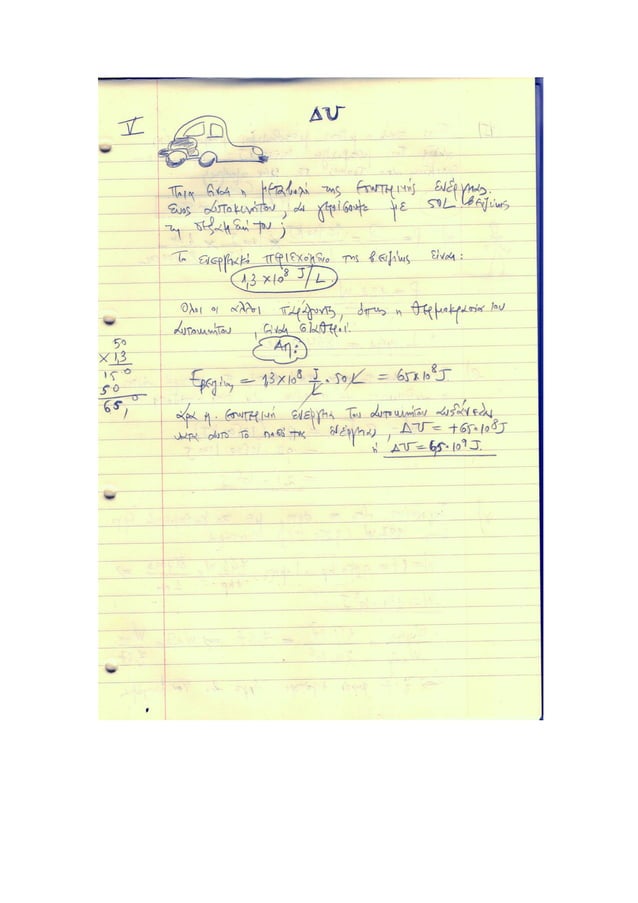 ΔU
V
Ποια είναι η μεταβολή της εσωτερικής ενέργειας
ενός αυτοκινήτου, αν γεμίσουμε με 50L βενζίνης
τη δεξαμενή του;
Το ενεργειακό περιεχόμενο της βενζίνης είναι:
1,3 × 10⁸ J/L.
Όλοι οι άλλοι παράγοντες, όπως η θερμοκρασία του
αυτοκινήτου, είναι σταθεροί.
Απ:
50
× 1,3
150
50
65,0
Eβενζίνης = 1,3 × 10⁸ J/L · 50 L = 65 × 10⁸ J
άρα η εσωτερική ενέργεια του αυτοκινήτου αυξάνεται
κατά αυτό το ποσό της ενέργειας, ΔU = +65·10⁸ J
ή ΔU = 6,5·10⁹ J.